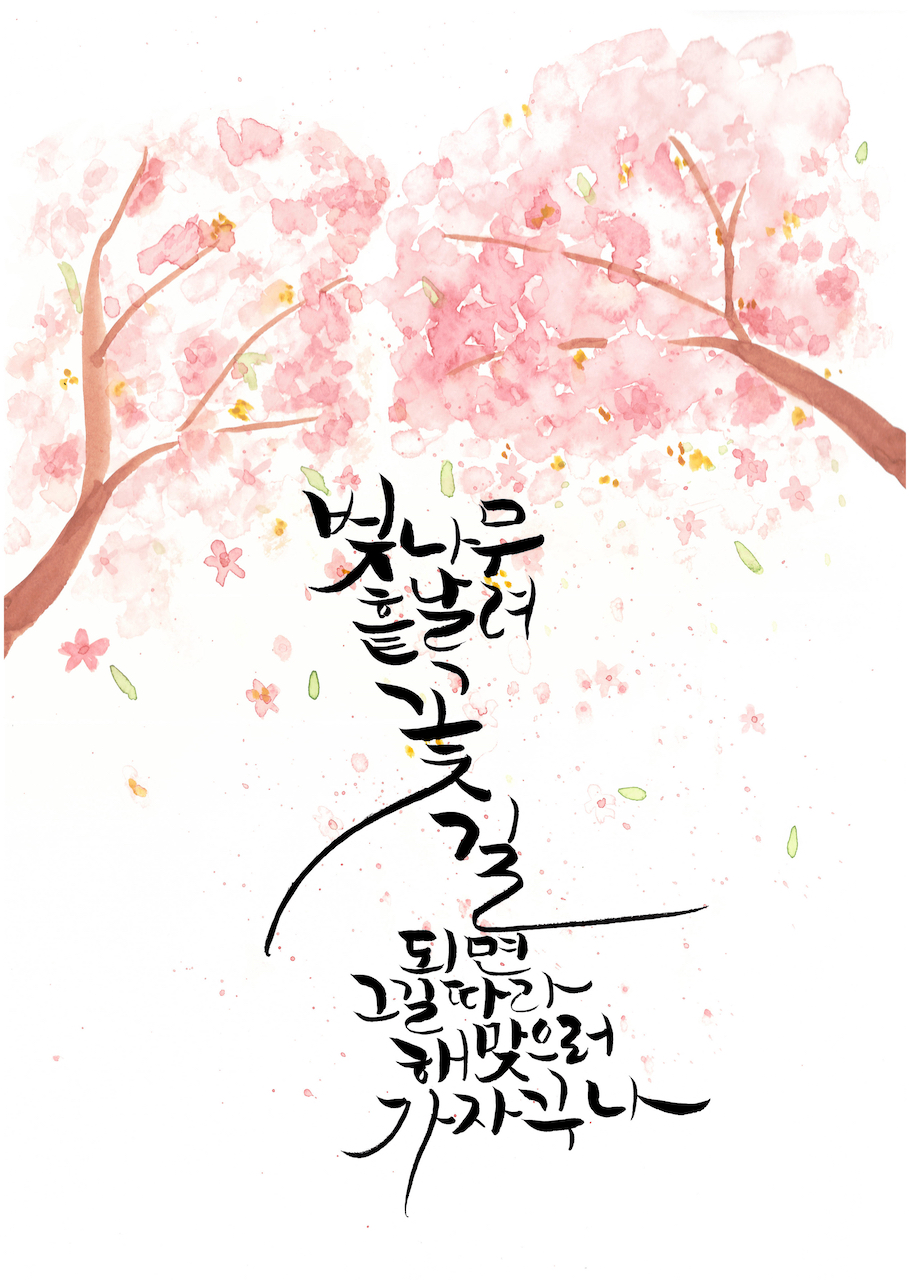 벚나무
흩날려
꽃
길
되면
그길따라
해맞으러
가자꾸나